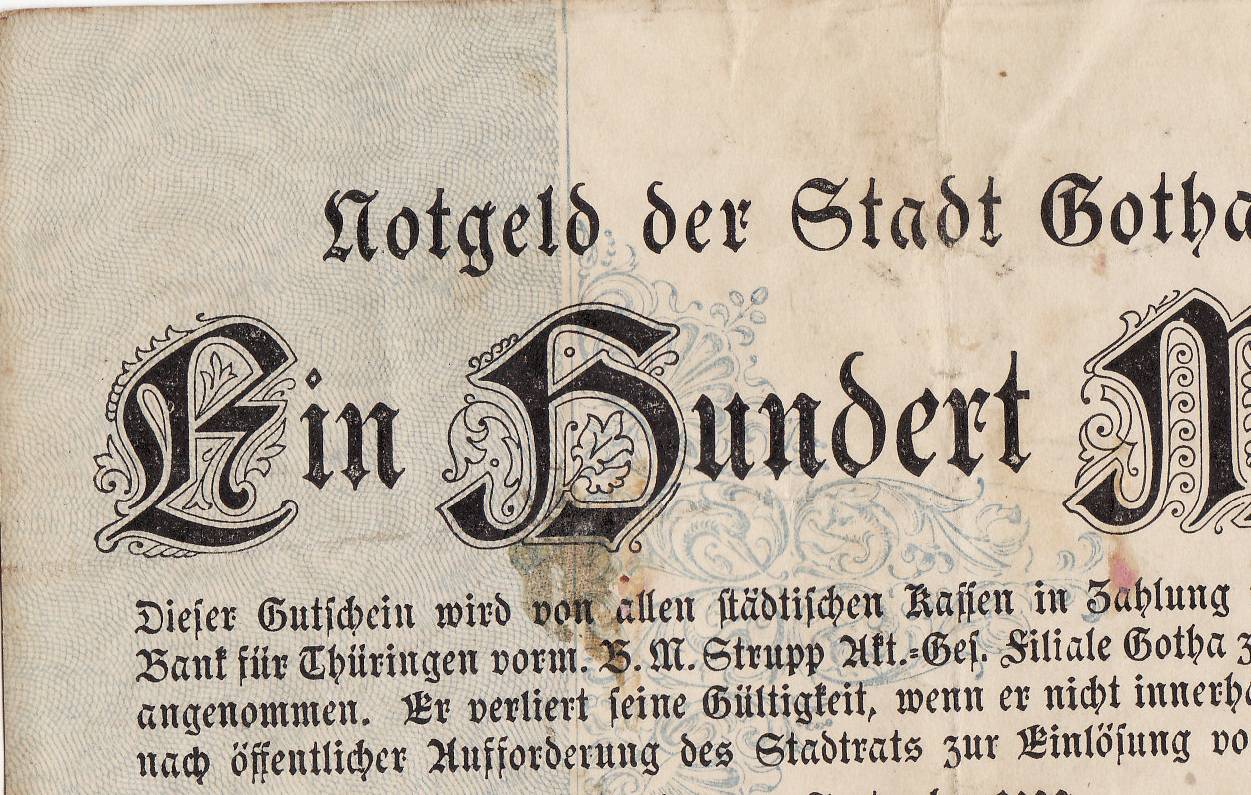 Notgeld der Stadt Gotha
Ein Hundert M
Dieſer Gutſchein wird von allen ſtädtiſchen Kaſſen in Zahlung
Bank für Thüringen vorm. B. M. Strupp Akt.=Geſ. Filiale Gotha z
angenommen. Er verliert ſeine Gültigkeit, wenn er nicht innerha
nach öffentlicher Aufforderung des Stadtrats zur Einlöſung vo